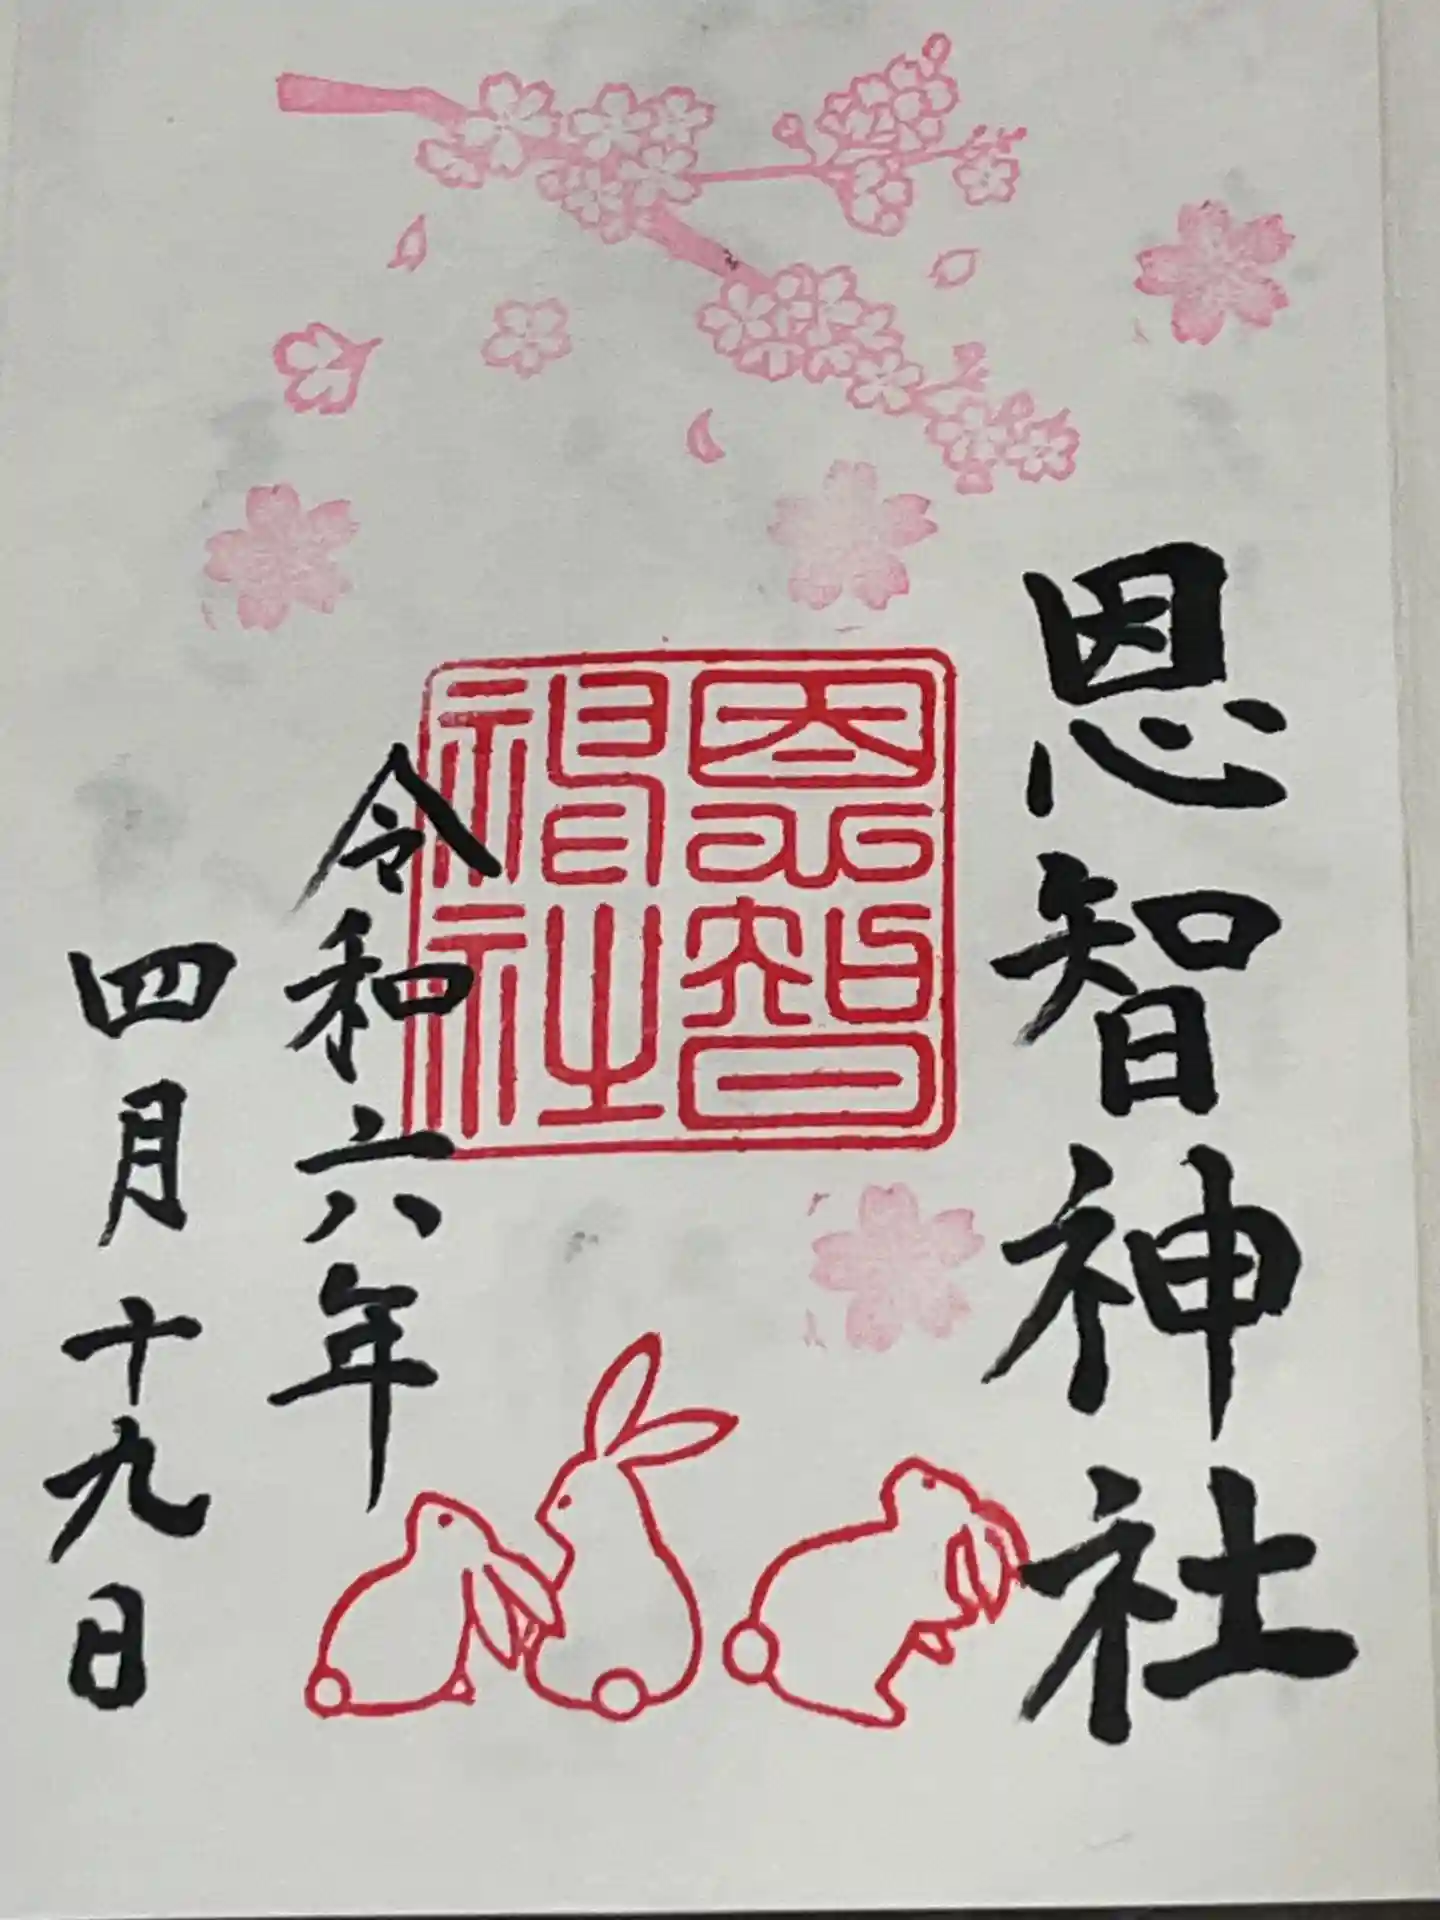 恩智神社
恩智
神社
令和六年
四月十九日